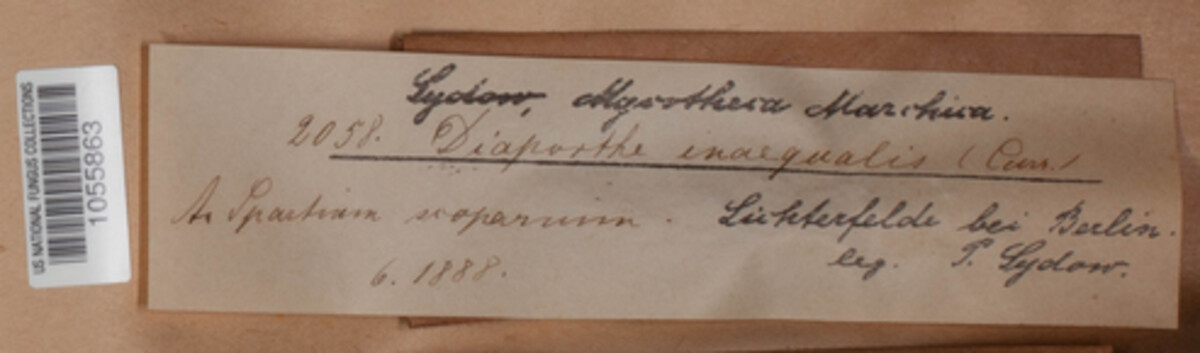 US NATIONAL FUNGUS COLLECTIONS
1055863
Sydow, Mycotheca Marchica.
2058. Diaporthe inaequalis (Curr.)
An Spartium scoparium.
6. 1888.
Lichterfelde bei Berlin.
leg. P. Sydow.